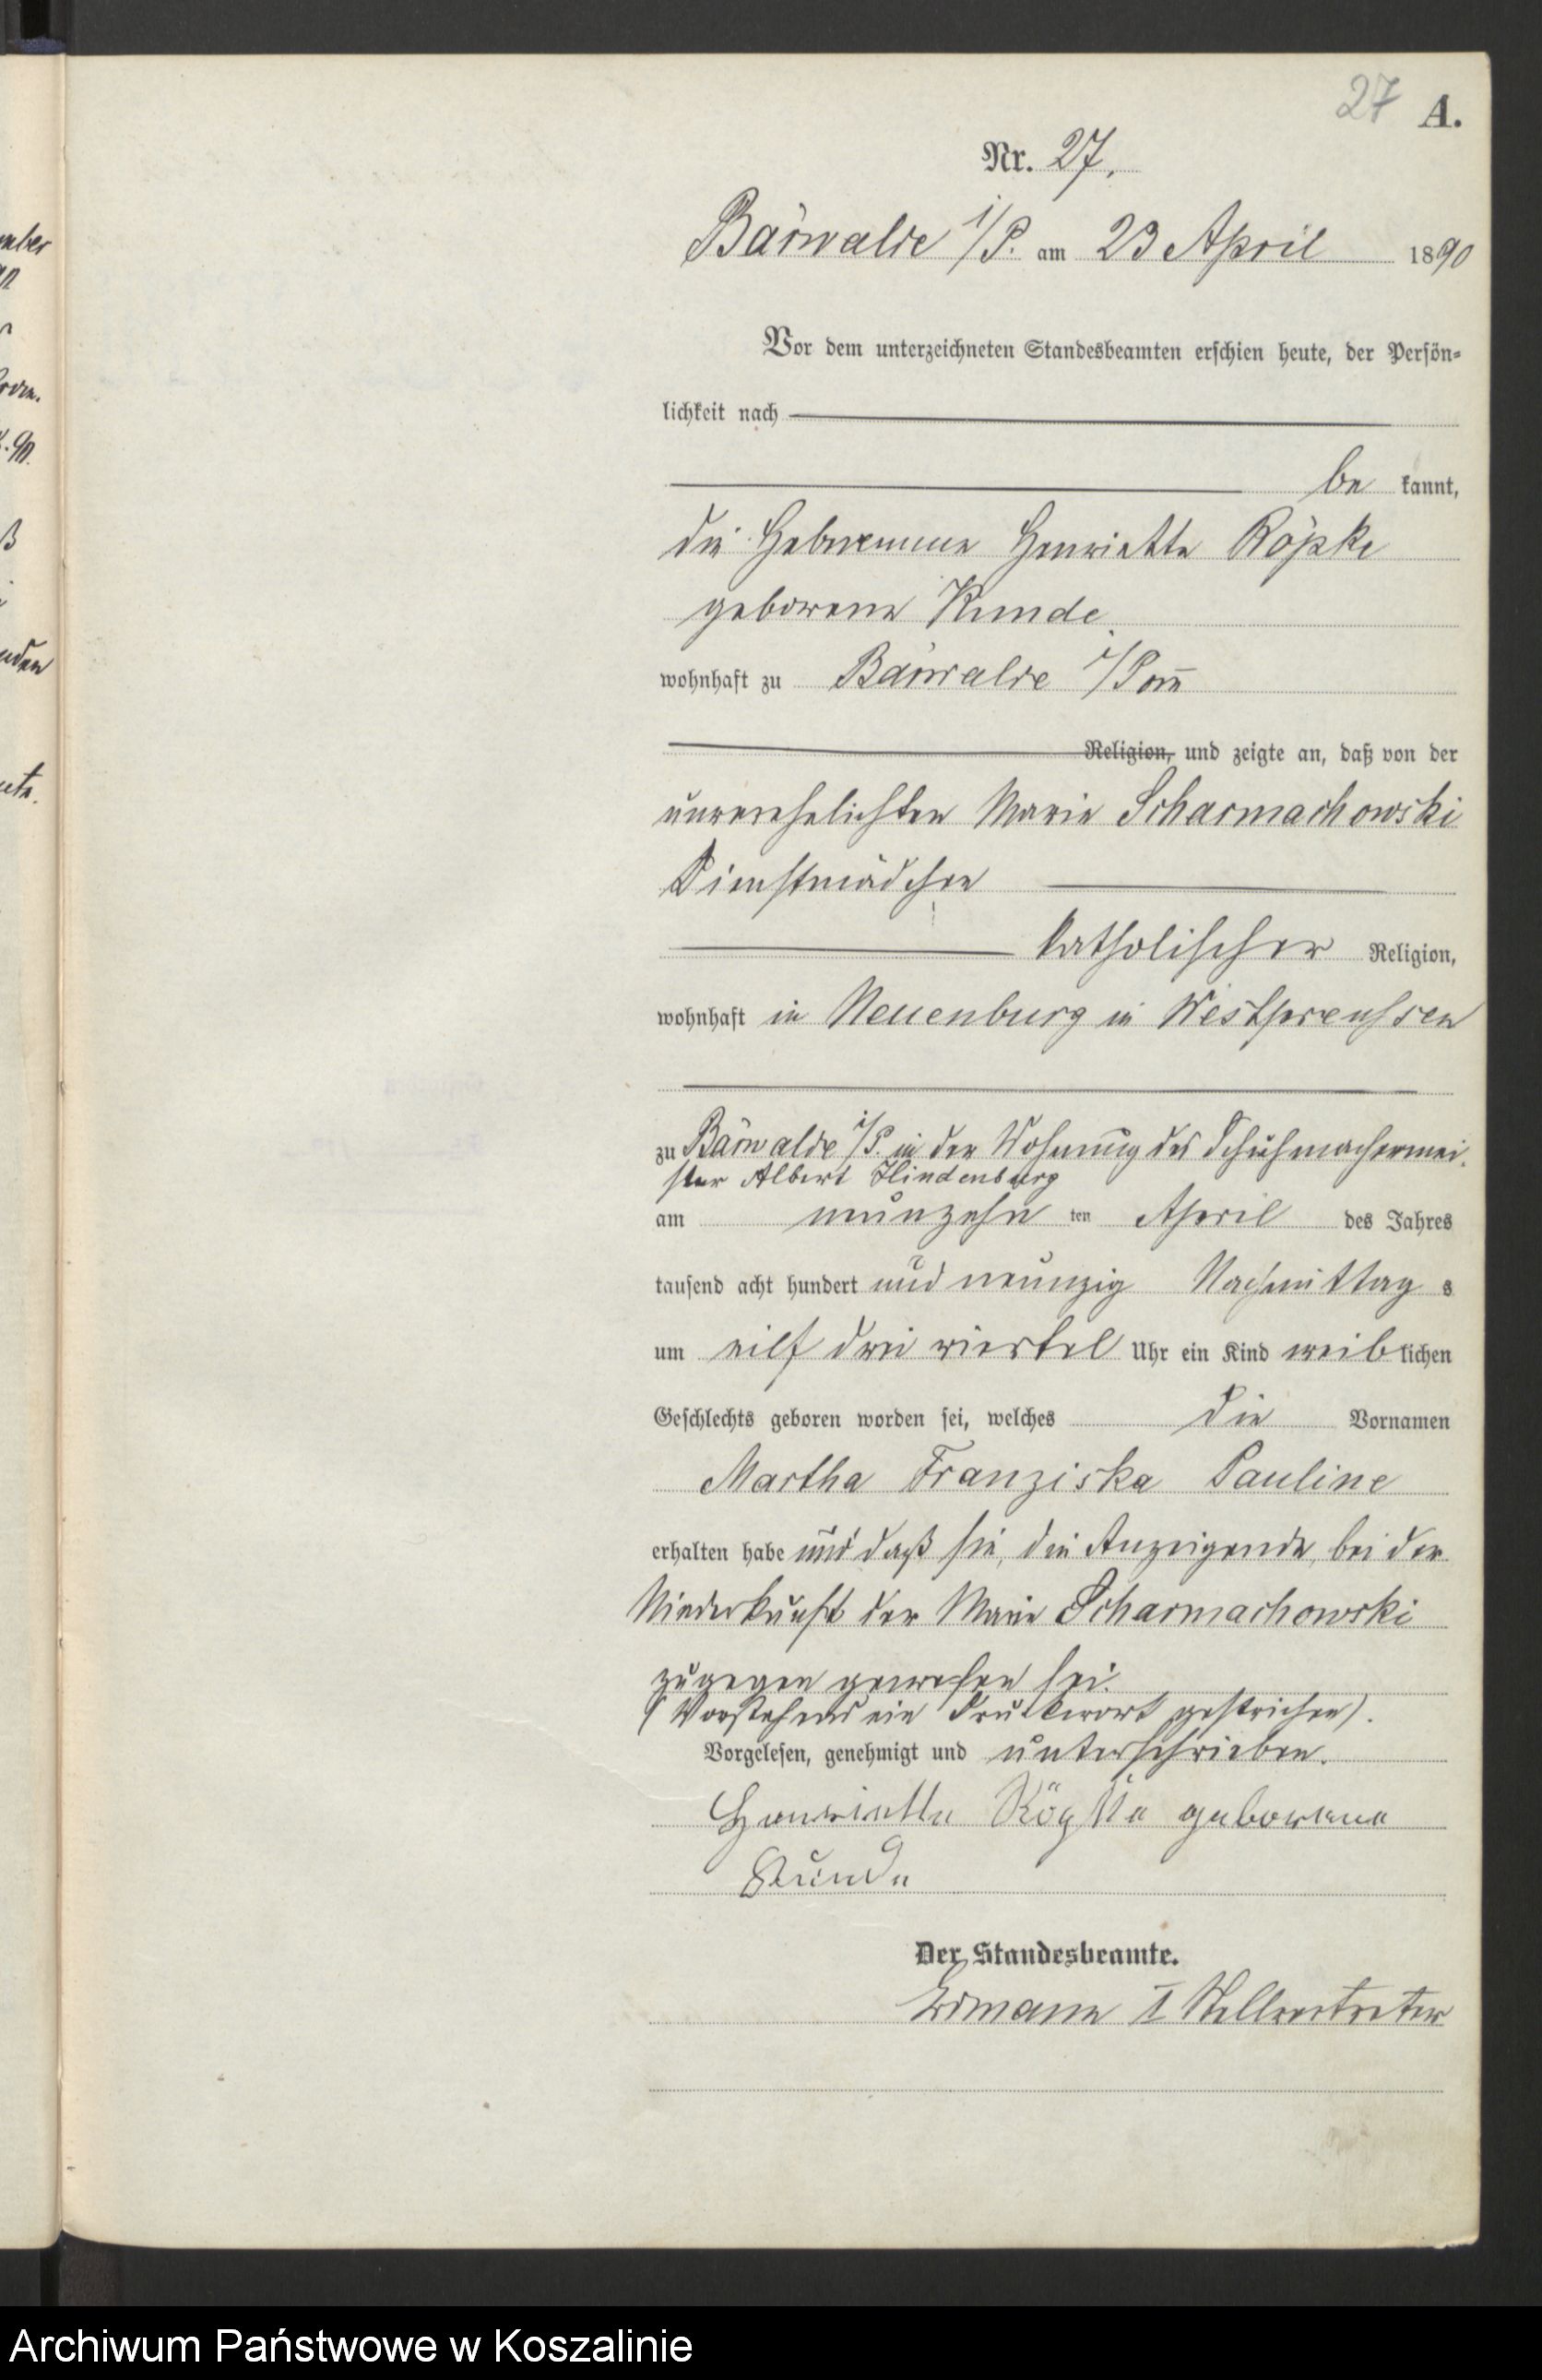 27 A.
Nr. 27.
Bärwalde i/P. am 23 April 1890
Vor dem unterzeichneten Standesbeamten erschien heute, der Persön-
lichkeit nach
be kannt,
die Hebeamme Henriette Röpke
geborene Kunde
wohnhaft zu Bärwalde i/Pom̄
Religion, und zeigte an, daß von der
unverehelichten Marie Scharmachowski
Dienstmädchen
katholischer Religion,
wohnhaft in Neuenburg in Westpreußen
zu Bärwalde i/P. in der Wohnung des Schuhmachermei-
ster Albert Hindenburg
am neunzehn ten April des Jahres
tausend acht hundert und neunzig Nachmittag s
um eilf drei viertel Uhr ein Kind weib lichen
Geschlechts geboren worden sei, welches die Vornamen
Martha Franziska Pauline
erhalten habe und daß sie, die Anzeigende, bei der
Niederkunft der Marie Scharmachowski
zugegen gewesen sei.
(Vorstehend ein Druckwort gestrichen).
Vorgelesen, genehmigt und unterschrieben.
Henriette Röpke geborene
Kunde
Der Standesbeamte.
Erdmann I Stellvertreter
Archiwum Państwowe w Koszalinie